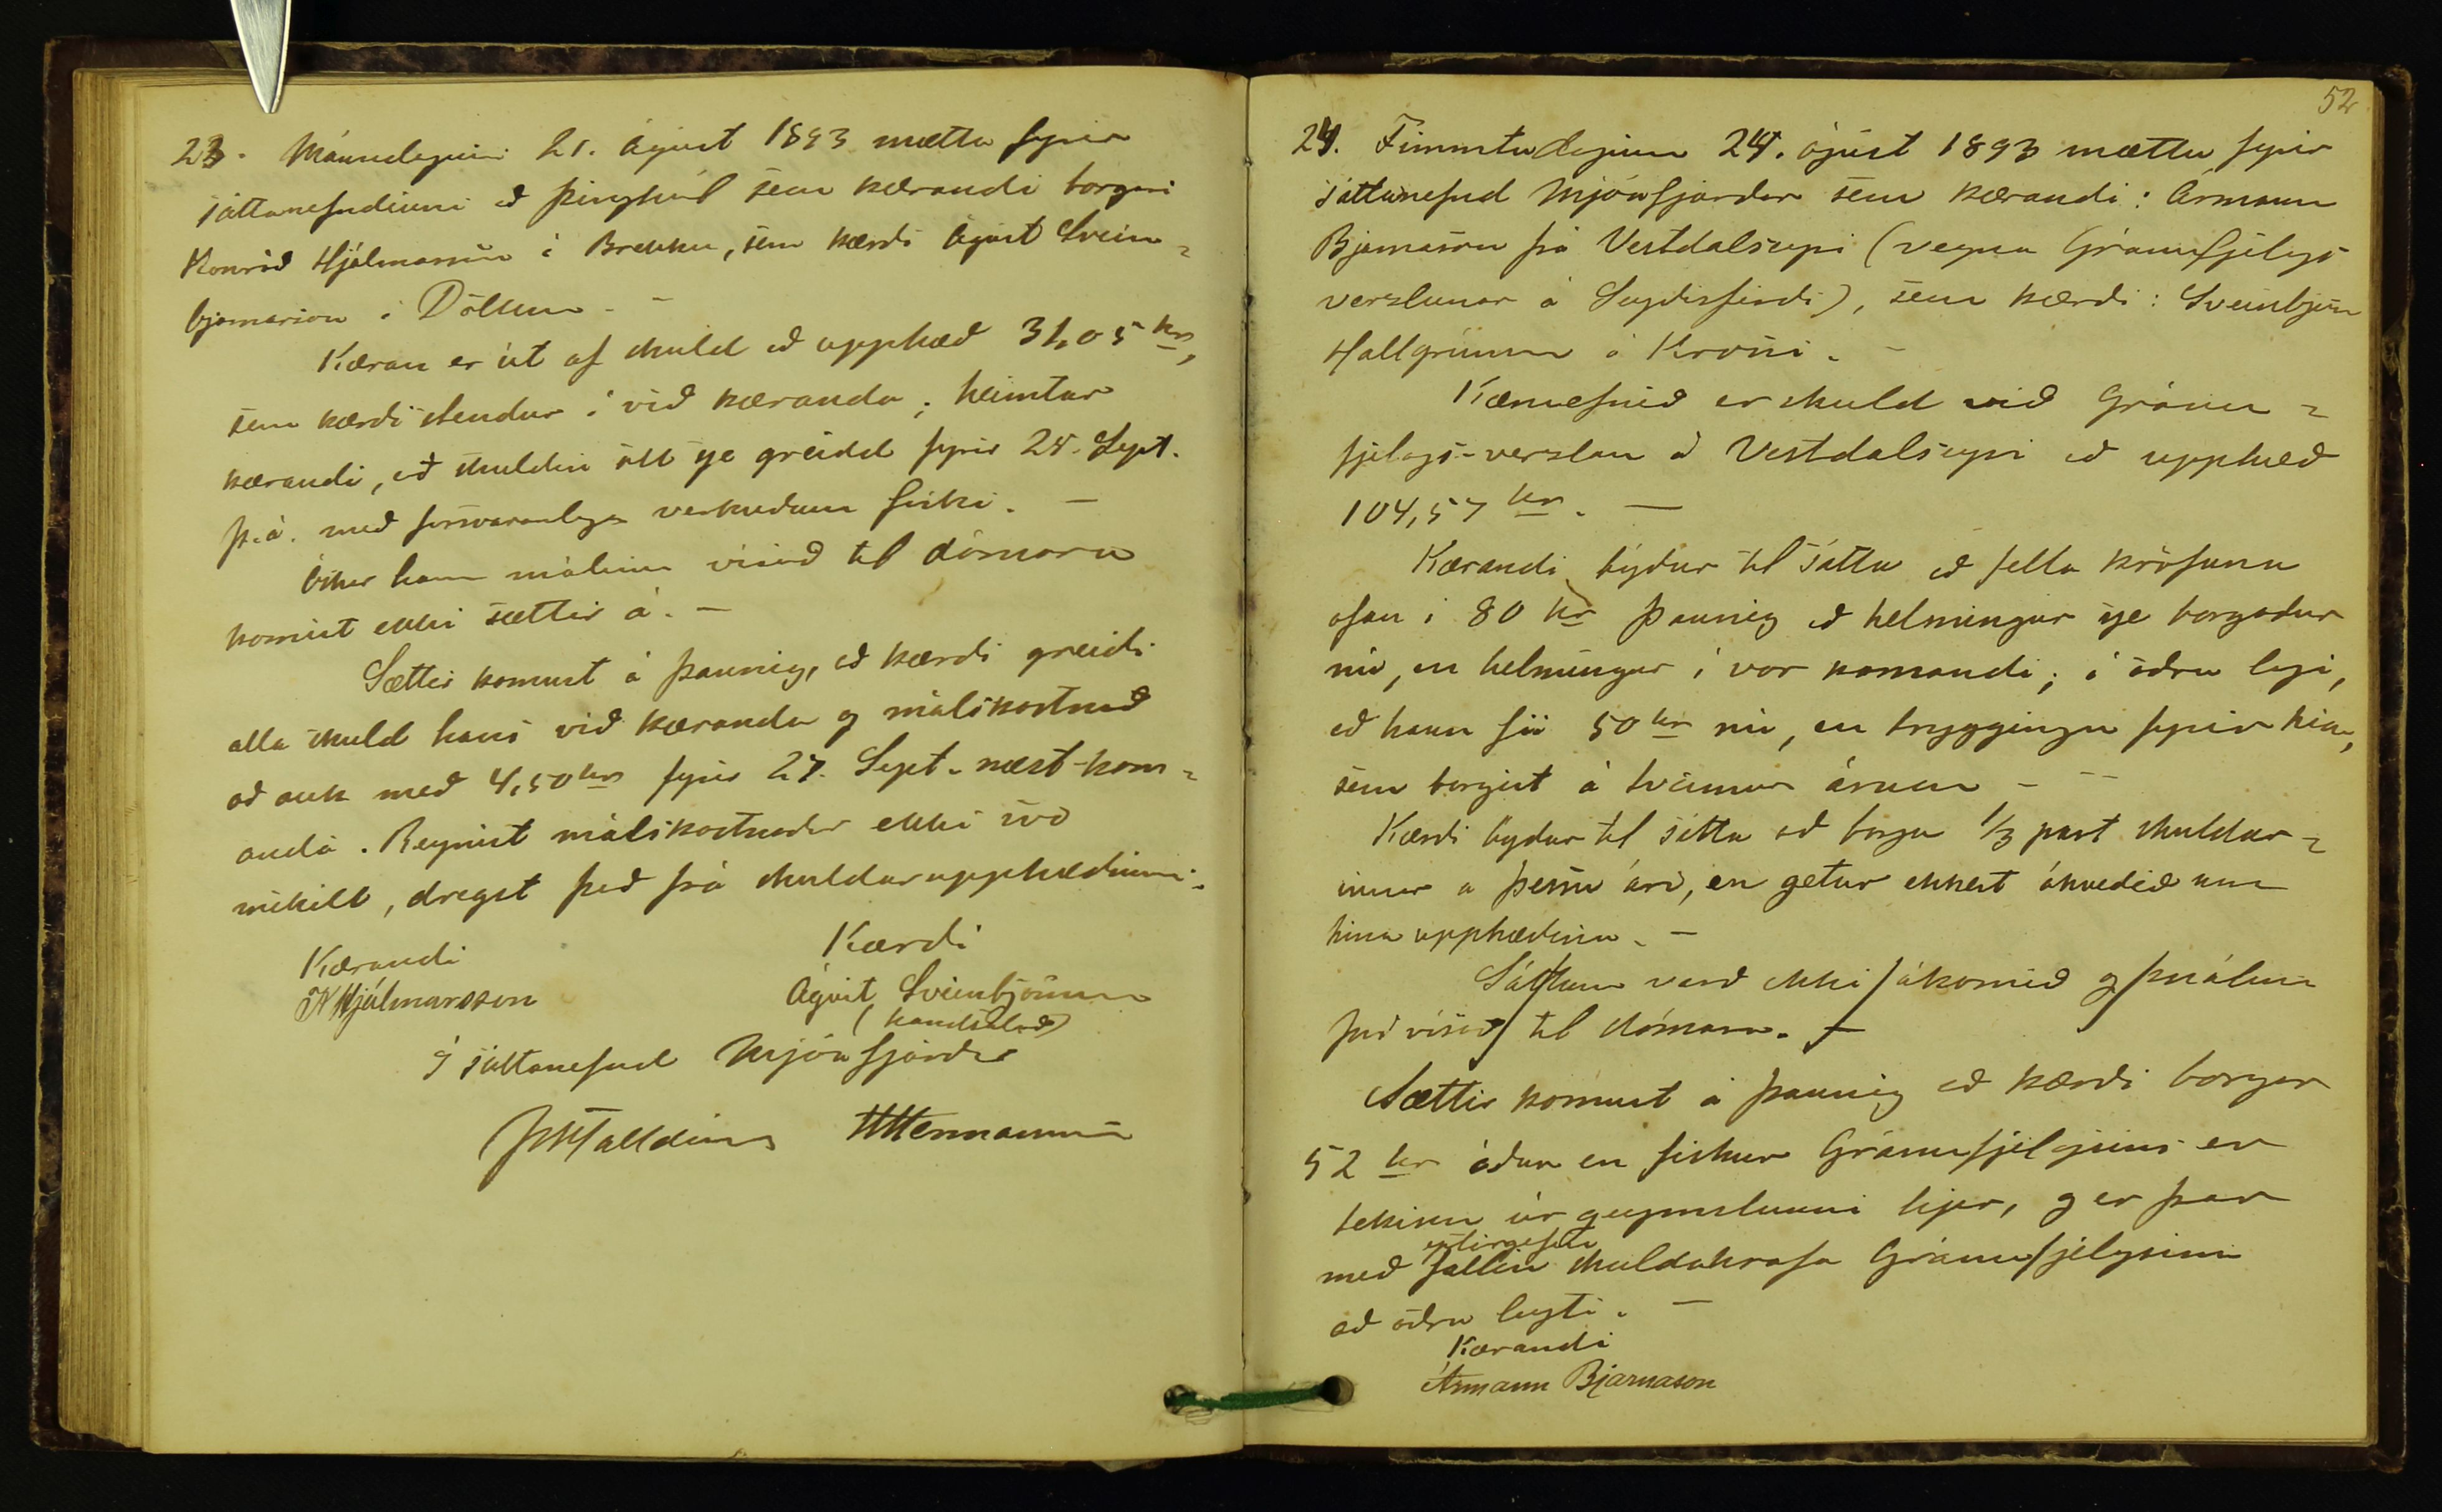 23. Mánudaginn 21. ágúst 1893 mættu fyrir
sáttanefndinni að þinghúsi sem kærandi borgari
Konráð Hjálmarsson á Brekku, sem kærði Ágúst Svein=
bjarnarson í Dölum. –
Kæran er út af skuld að upphæð 31,05 kr,
sem kærði stendur í við kæranda; heimtar
kærandi, að skuldin öll sje greidd fyrir 24. Sept.
þ.á. með forsvaranlega verkuðum fiski. –
Óskar hann málinu vísað til dómara
komist ekki sættir á. –
Sættir komust á þannig, að kærði greiði
alla skuld hans við kæranda og málskostnað
að auk með 4,50 kr fyrir 27. Sept. næst-kom=
anda. Reynist málskostnaður ekki svo
mikill, dregst það frá skuldarupphæðinni.
Kærandi
Kærði
KHjálmarsson
Ágúst Sveinbjörnsson
(handsalað)
Í sáttanefnd Mjóafjarðar
HHermannsson
52
24. Fimmtudaginn 24. ágúst 1893 mættu fyrir
sáttanefnd Mjóafjarðar sem kærandi: Ármann
Bjarnason frá Vestdalseyri (vegna Gránufjelags
verslunar á Seyðisfirði), sem kærði: Sveinbjörn
Hallgrímsson á Krossi. –
Kæruefnið er skuld við Gránu=
fjelags-verslan á Vestdalseyri að upphæð
104,57 kr. –
Kærandi býður til sátta að fella kröfuna
ofan í 80 kr þannig að helmingur sje borgaður
nú, en helmingur í vor komandi; í öðru lagi,
að hann fái 50 kr nú, en tryggingu fyrir hinu,
sem borgist á tveimur árum – –
Kærði býður til sátta að borga 1/3 part skuldar=
innar á þessu ári, en getur ekkert ákveðið um
hina upphæðina. –
Sáttum varð ekki ákomið og málinu
því vísað til dómara. –
Sættir komust á þannig að kærði borgar
52 kr áður en fiskur Gránufjelagsins er
tekinn úr geymslunni hjer, og er þar
eptirgefin
með fallin skuldakrafa Gránufjelagsins
að öðru leyti. –
Kærandi
Ármann Bjarnason